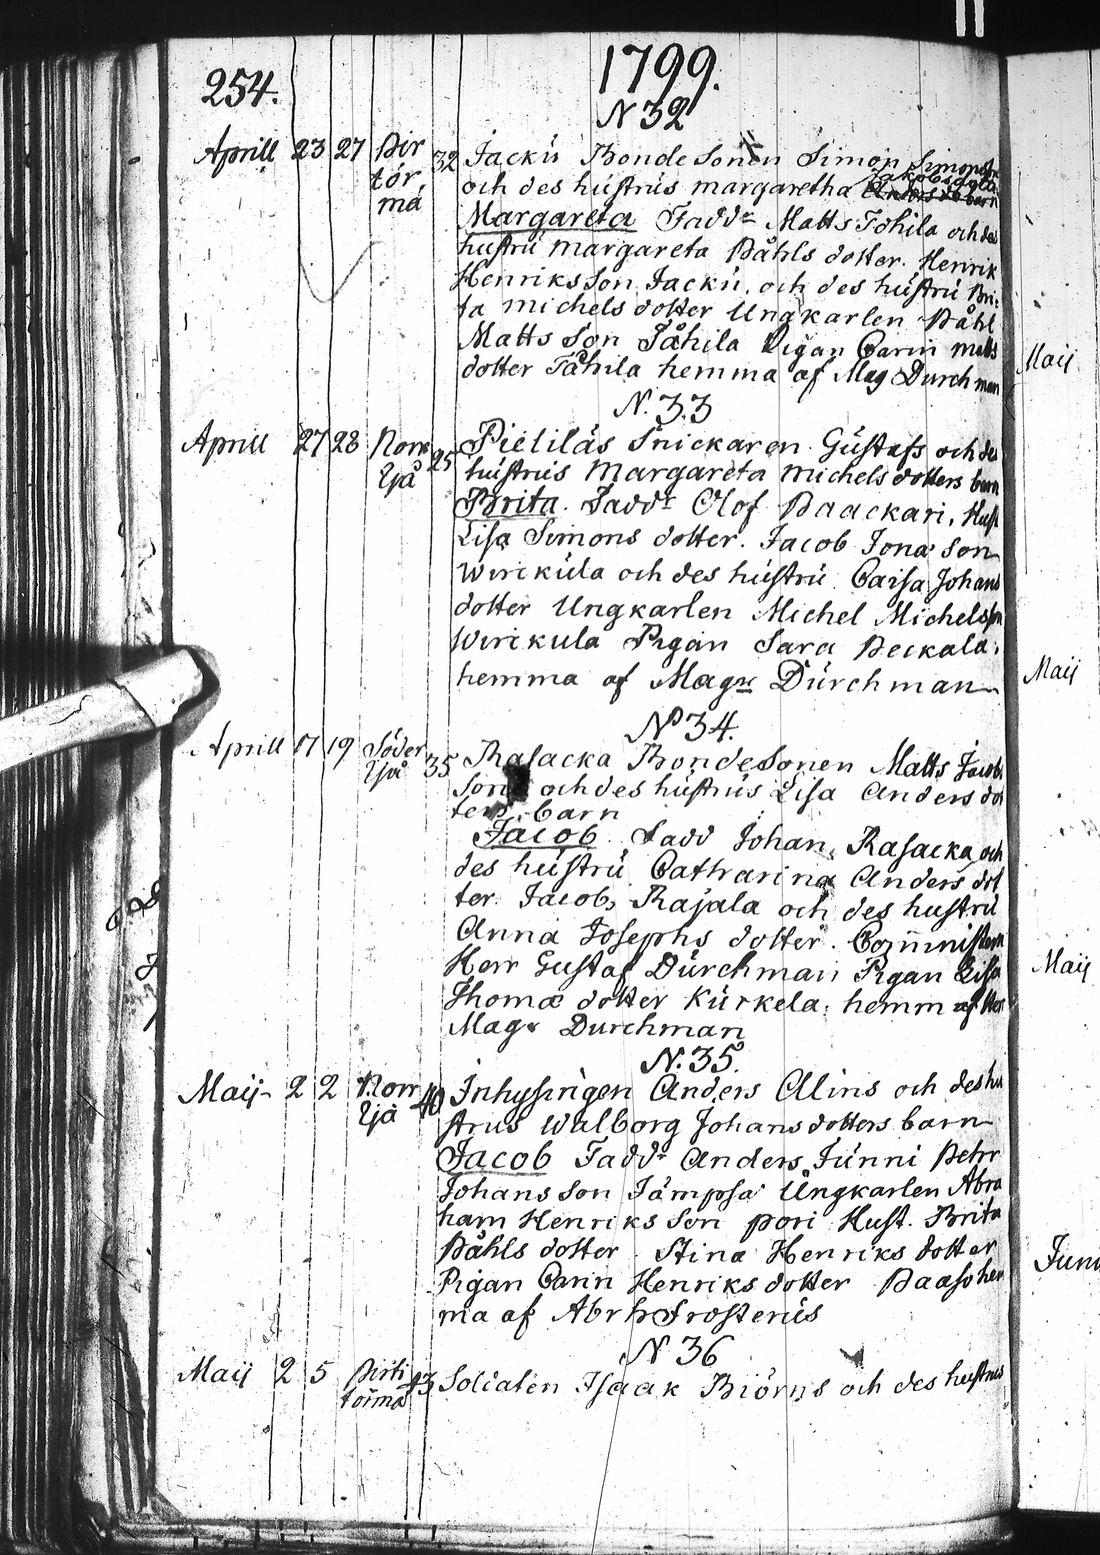 254.
1799.
N 32
Aprill 23 27 Pir 32 Jackú Bonde Sonen Simon Simonss
tör och des hústrús margaretha Jakobsdotter
má
Margareta Faddr Matts Tohila och des
hustrú margareta Påhls dotter. Henrik
Henriks Son Jackú. och des hústrú Bri:
ta michels dotter Ungkarlen Påhl
Matts Son Tåhila Pigan Carin Matts
dotter Tåhila hemma af Mag Durchman
N. 33
Aprill 27 28 Norr 25 Pietiläs Snickaren Gústafs och des
ljå hústrús Margareta michels dotters barn
Brita. Faddr Olof Paackari, Hust
Lisa Simons dotter. Jacob Jona Son
Wirikúla och des hústrú Caisa Johans
dotter Ungkarlen Michel Michelsson
Wirikula Pigan Sara Peckala.
hemma af Magr Dúrchman
No 34.
Aprill 17 19 Söder 35 Rasacka BondeSonen Matts Jacob
ljå Sons och des hústrús Lisa Anders dot
ters barn
Jacob. Fadd Johan Rasacka och
des hústrú Catharina Anders dot
ter. Jacob Rajala och des hustrú
Anna Josephs dotter. Comministern
Herr Gustaf Dúrchman Pigan Lisa
Thomæ dotter Kúrkela. hemm af Her
Magr Durchman
N. 35.
Maij- 2 2 Norr 40 Inhysingen Anders Alins och des hu
ljå strus Walborg Johans dotters barn
Jacob Faddr Anders Júnni Pehr
Johans Son Jämpsä Ungkarlen Abra
ham Henriks Son pori Hust. Brita
Påhls dotter. Stina Henriks dotter
Pigan Carin Henriks dotter Paaso hem
ma af Abrh Frosterús
N 36
Maij 2 5 Pirti 43 Soldaten Isaak Biörns och des hustrus
törmä
Maij
Maij
Maij
Juni